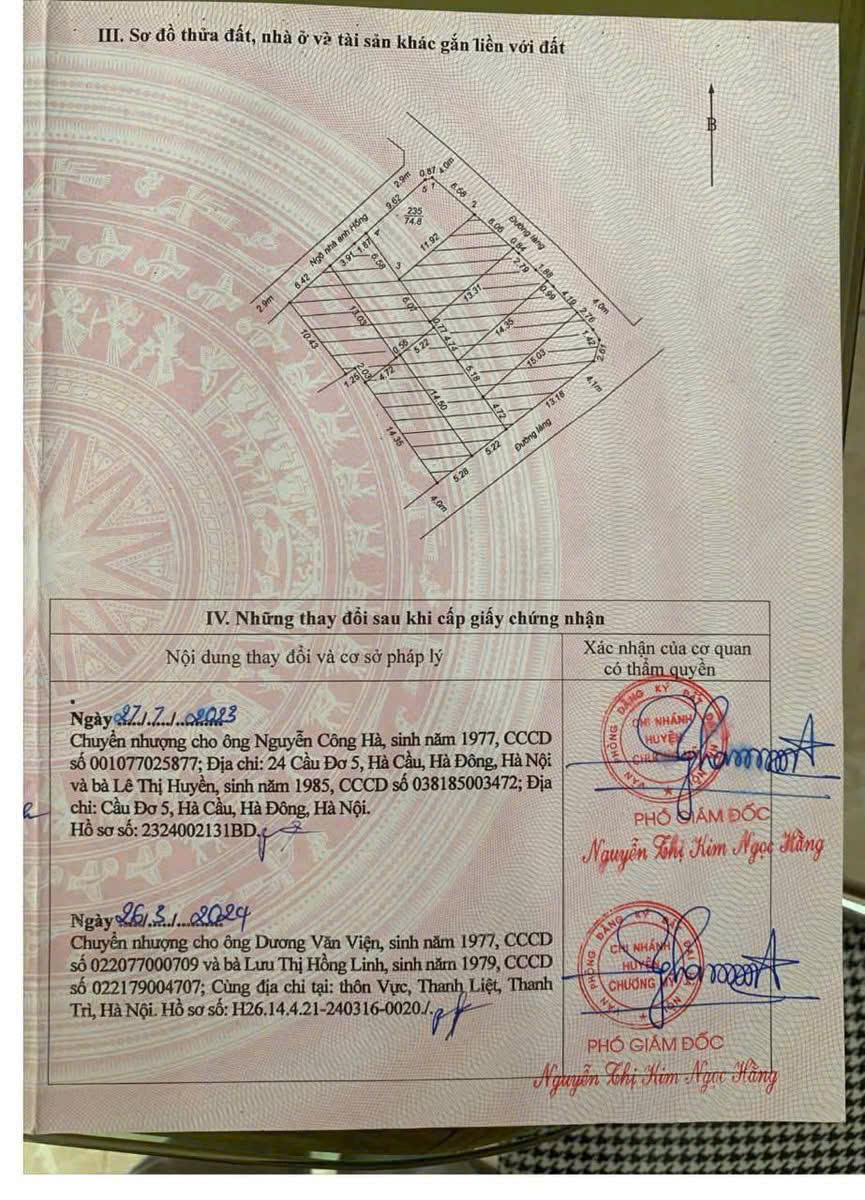 III. Sơ đồ thửa đất, nhà ở và tài sản khác gắn liền với đất
B
2.9m
0.87
4.0m
5
1
6.58
2
9.62
235
74.8
Ngõ nhà anh Hồng
4
11.92
6.06
Đường làng
0.84
2.79
1.88
0.99
4.19
4.0m
2.76
1.42
2.61
3
1.87
3.91
6.58
6.42
2.9m
6.07
13.31
13.03
0.77
4.74
14.35
0.56
5.22
15.03
10.43
2.03
1.25
4.72
5.18
4.1m
14.50
4.72
13.18
14.35
5.22
Đường làng
5.28
4.0m
IV. Những thay đổi sau khi cấp giấy chứng nhận
Nội dung thay đổi và cơ sở pháp lý
Xác nhận của cơ quan
có thẩm quyền
Ngày 27/7/2023
Chuyển nhượng cho ông Nguyễn Công Hà, sinh năm 1977, CCCD
số 001077025877; Địa chỉ: 24 Cầu Đơ 5, Hà Cầu, Hà Đông, Hà Nội
và bà Lê Thị Huyền, sinh năm 1985, CCCD số 038185003472; Địa
chỉ: Cầu Đơ 5, Hà Cầu, Hà Đông, Hà Nội.
Hồ sơ số: 2324002131BD.
VĂN PHÒNG ĐĂNG KÝ ĐẤT ĐAI HÀ NỘI
CHI NHÁNH
HUYỆN
CHƯƠNG MỸ
PHÓ GIÁM ĐỐC
Nguyễn Thị Kim Ngọc Hằng
Ngày 26/3/2024
Chuyển nhượng cho ông Dương Văn Viện, sinh năm 1977, CCCD
số 022077000709 và bà Lưu Thị Hồng Linh, sinh năm 1979, CCCD
số 022179004707; Cùng địa chỉ tại: thôn Vực, Thanh Liệt, Thanh
Trì, Hà Nội. Hồ sơ số: H26.14.4.21-240316-0020./.
VĂN PHÒNG ĐĂNG KÝ ĐẤT ĐAI HÀ NỘI
CHI NHÁNH
HUYỆN
CHƯƠNG MỸ
PHÓ GIÁM ĐỐC
Nguyễn Thị Kim Ngọc Hằng